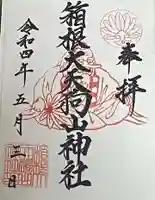 奉拝
箱根大天狗山神社
令和四年五月三日